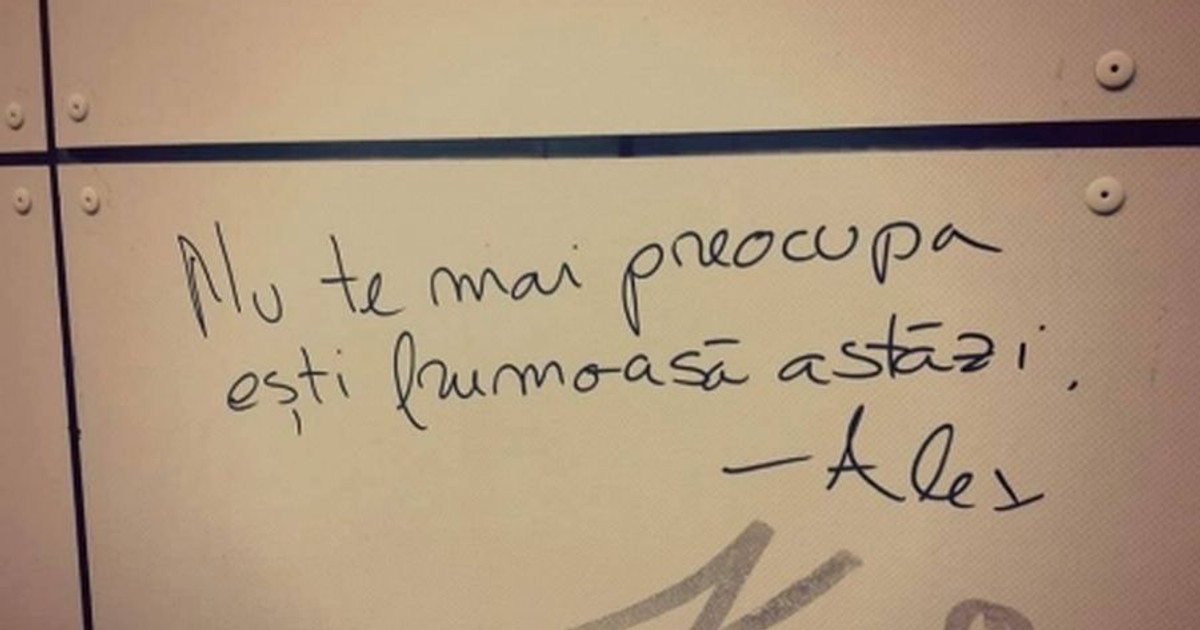 Nu te mai preocupa
ești frumoasă astăzi.
— Alex